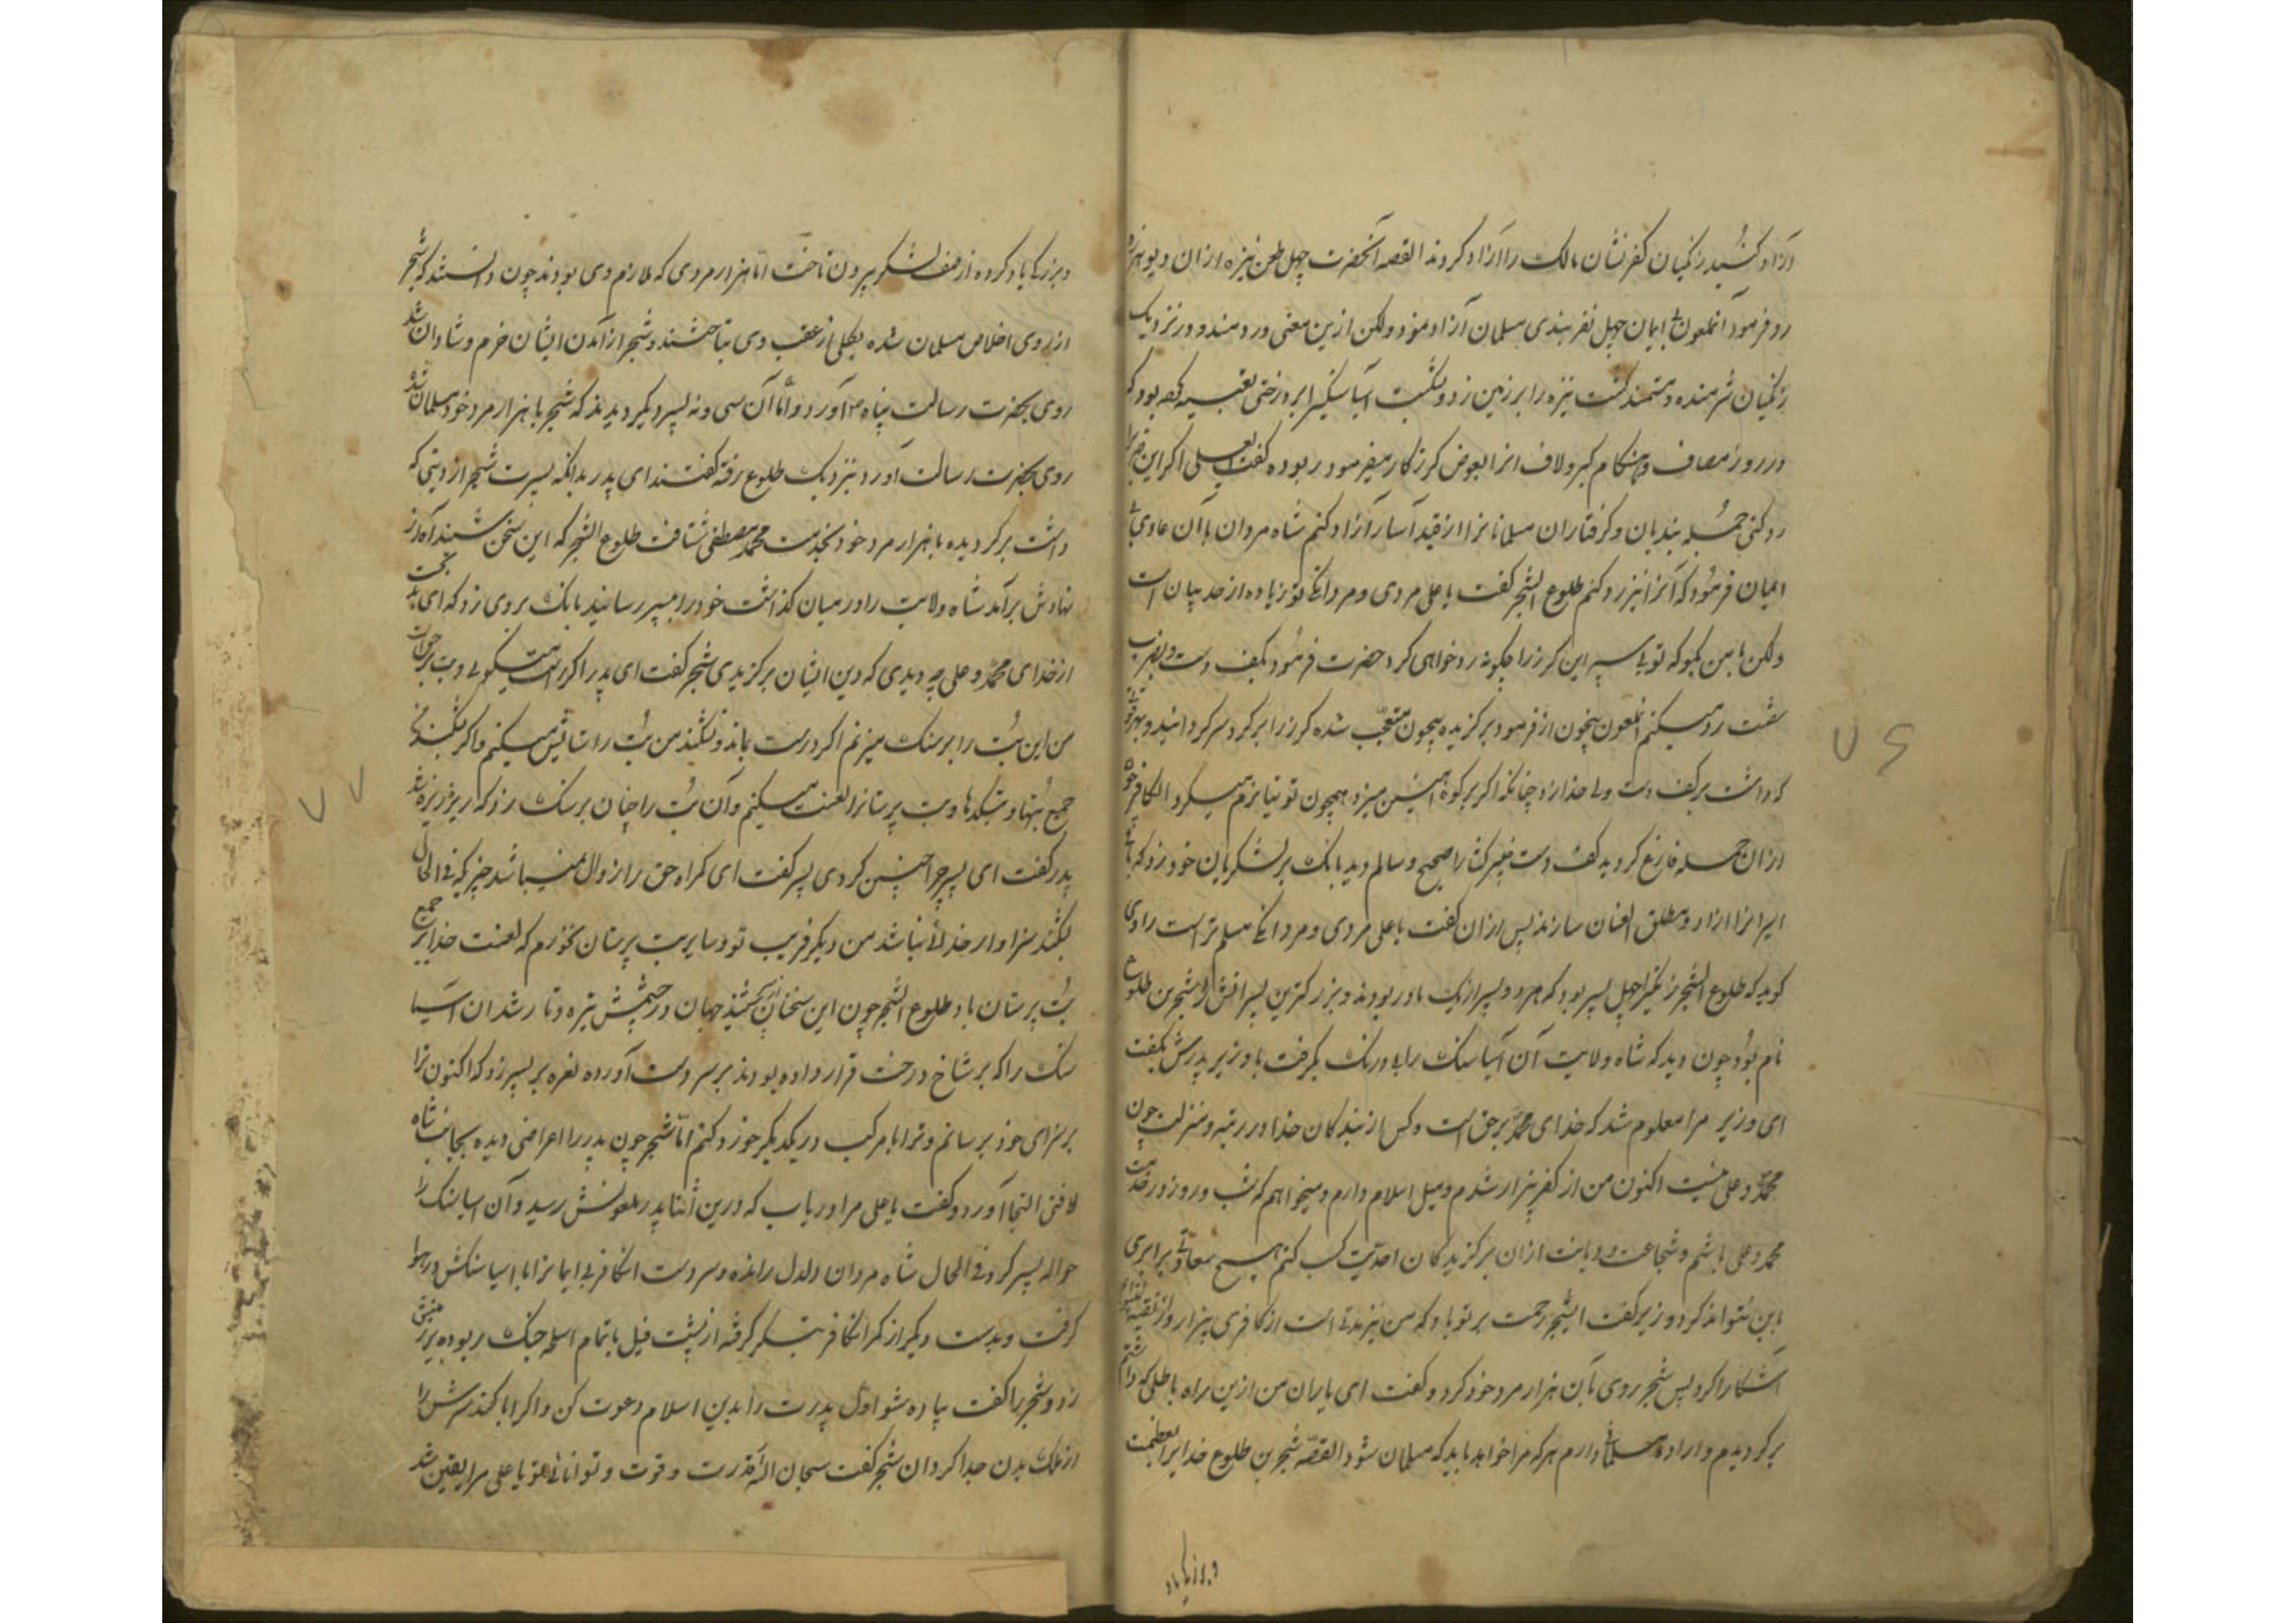 آزاد کنید زنگیان کفر نشان مالک را آزاد کردند القصه آنحضرت چهل طعن نیزه از آن دیو
رد فرمود آنملعون بی ایمان چهل نفر بندی مسلمان آزاد نمود ولکن ازین معنی دردمند و در نزدیک
زنگیان شرمنده و مستمند گشت نیزه را بر زمین زد و آسیا سنگ را بر درختی تعبیه کرده بود که
در روز مصاف و هنگام کبر و لاف آنرا بعوض گرز کار میفرمود ربوده گفت یا علی اگر این ضرب را
رد کنی جمله بندیان و گرفتاران مسلمانانرا از قید آسار آزاد کنم شاه مردان با آن عادی بی
ایمان فرمود که آنرا نیز رد کنم طلوع الشجر گفت یا علی مردی و مردانگی تو زیاده از حد بیان است
ولکن با من بگو که تو بی سپر این گرز را چگونه رد خواهی کرد حضرت فرمود بکف دست و بضرب
شست رد میکنم آنملعون بیچون از فرموده برگزیده بیچون متعجب شده گرز را بر گرد سر گردانید و بهر قوتی
که داشت بر کف دست ولی خدا زد چنانکه اگر بر کوه آهنین میزد همچون توتیا نرم میگرد الکافر چون
از آن حمله فارغ گردید کف دست خیبرگشا را صحیح و سالم دید بانک بر لشکریان خود زد که
اسیرانرا آزاد و مطلق العنان سازند پس از آن گفت یا علی مردی و مردانگی مسلم تراست راوی
گوید که طلوع الشجر زنگیرا چهل پسر بود که هر دو پسر از یک مادر بودند و بزرگترین پسرانش را شجر بن طلوع
نام بود چون دید که شاه ولایت آن آسیا سنک را بی درنک بگرفت با وزیر پدرش بگفت
ای وزیر مرا معلوم شد که خدای محمد برحق است و کس از بندگان خدا در رتبه و منزلت چون
محمد و علی نیست اکنون من از کفر بیزار شدم و میل اسلام دارم و میخواهم که شب و روز در خدمت
محمد و علی باشم و شجاعت و دیانت از آن برگزیدگان احدیت کسب کنم هیچ سعادتی برابری
باین نتواند کرد وزیر گفت ای شجر رحمت بر تو باد که من نیز مدتی است از کافری بیزار و از تقیه
آشکارا کرد پس شجر روی بآن هزار مرد خود کرد و گفت ای یاران من ازین راه باطلی که داشتم
برگردیدم و اراده مسلمانی دارم هر که مرا خواهد باید که مسلمان شود القصه شجر بن طلوع خدایرا بعظمت
و بزرگی یاد
۷۶
و بزرگی یاد کرده از صف لشکر بیرون تاخت اما هزار مردی که ملازم وی بودند چون دانستند که شجر
از روی اخلاص مسلمان شده بکلی از عقب وی بتاختند و شجر از آمدن ایشان خرم و شادان شد
روی بحضرت رسالت پناه آورد و اما آن سی و نه پسر دیگر دیدند که شجر با هزار مرد خود مسلمان شد
روی بحضرت رسالت آورد بنزدیک طلوع رفته گفتند ای پدر بدانکه پسرت شجر از دینی که
داشت برگردیده با هزار مرد خود بخدمت محمد مصطفی شتافت طلوع الشجر که این سخن شنید آه از
نهادش برآمد شاه ولایت را در میان گذاشت خود را بپسر رسانید بانک بر وی زد که ای بدبخت
از خدای محمد و علی چه دیدی که دین ایشان برگزیدی شجر گفت ای پدر اگر راست میگوئی و بت بر حق است
من این بت را بر سنک میزنم اگر درست بماند و نشکند من بت را ستایش میکنم و اگر بشکند
جمیع بتها و بتکدها و بت پرستانرا لعنت میکنم و آن بت را چنان بر سنک زد که ریزه ریزه شد
پدر گفت ای پسر چرا چنین کردی پسر گفت ای گمراه حق را زوال نمیباشد چیزیکه فی الحال
بشکند سزاوار خدائی نباشد من دیگر فریب تو و سایر بت پرستان نخورم که لعنت خدا بر جمیع
بت پرستان باد طلوع الشجر چون این سخنان بشنید جهان در چشمش تیره و تار شد آن آسیا
سنک را که بر شاخ درخت قرار داده بودند بر سر دست آورده نعره بر پسر زد که اکنون ترا
بسزای خود برسانم و ترا با مرکب در یکدیگر خورد کنم اما شجر چون پدر را اعراضی دیده بجانب شاه
لافتی التجا آورد و گفت یا علی مرا دریاب که درین اثنا پدر ملعونش رسید و آن آسیا سنک را
حواله پسر کرد فی الحال شاه مردان دلدل رانده و سر دست آنکافر بی ایمانرا با آسیا سنکش در هوا
گرفت و بدست دیگر از کمر آنکافر بتسکر گرفته از پشت فیل با تمام اسلحه جنک ربوده بر زمین
زد و شجر را گفت پیاده شو اول پدرت را بدین اسلام دعوت کن و اگر ابا کند سرش را
از ملک بدن جدا گردان شجر گفت سبحان الله قدرت و قوت و توانائی تو یا علی مرا یقین شد
۷۷